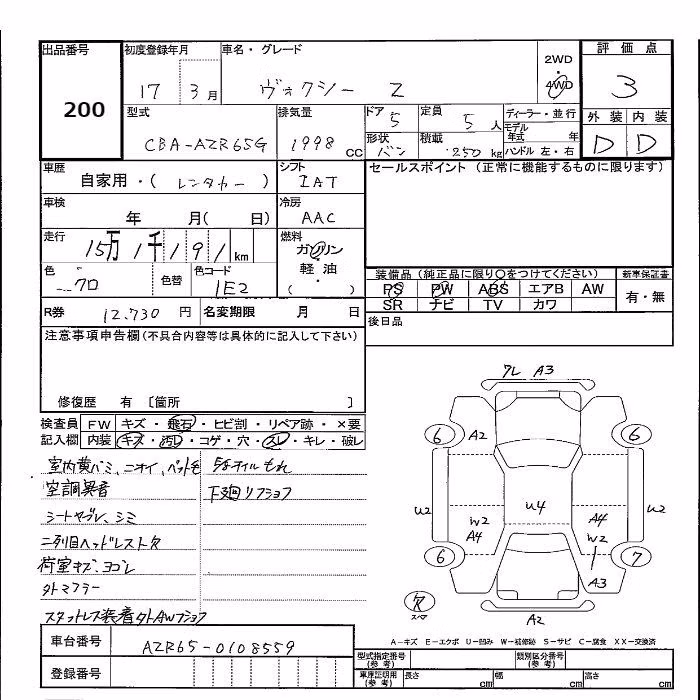 出品番号 初度登録年月 車名・グレード 評価点
200 17 3月 ヴォクシー Z 2WD 4WD 3
型式 排気量 ドア 5 定員 5人 ディーラー・並行 外装 内装
CBA-AZR65G 1998 cc 形状 バン 積載 250 kg モデル年式 年 ハンドル 左・右 D D
車歴 自家用・( レンタカー ) シフト IAT セールスポイント (正常に機能するものに限ります)
車検 年 月( 日) 冷房 AAC
走行 15万1千191 km 燃料 ガソリン
軽油
・
( )
色 クロ 色替 色コード 1E2
装備品 (純正品に限り○をつけてください) 新車保証書
PS PW ABS エアB AW 有・無
SR ナビ TV カワ
R券 12.730 円 名変期限 月 日 後日品
注意事項申告欄(不具合内容等は具体的に記入して下さい)
修復歴 有 〔箇所 〕
検査員 FW キズ・飛石・ヒビ割・リペア跡・×要
記入欄 内装 キズ・汚レ・コゲ・穴・スレ・キレ・破レ
室内黄バミ、ニオイ、ペット毛 エンジンオイルもれ
空調異音 下廻リフショク
シートヤブレ、シミ
二列目ヘッドレスト欠
荷室キズ、ヨゴレ
外マフラー
スタットレス装着 外AWフショク
ワレ A3
6 A2 6
U2 W2 A4 U4 A4 W2 U2
6 7
A3
スペア
A2
A-キズ E-エクボ U-凹み W-補修跡 S-サビ C-腐食 XX-交換済
車台番号 AZR65-0108559
登録番号
型式指定番号 (参考) 類別区分番号 (参考)
車庫証明用 (参考) 長さ cm 幅 cm 高さ cm